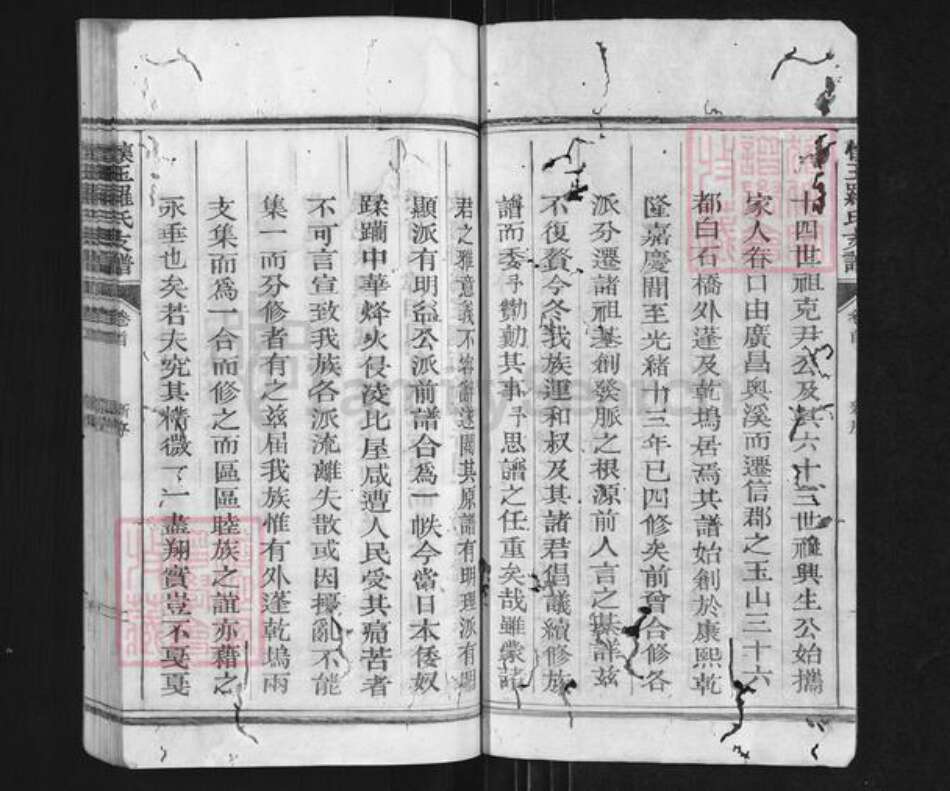 十四世祖克尹公及其六十三世禩興生公始攜
家人眷口由廣昌奧溪而遷信郡之玉山三十六
都白石橋外蓬及乾塢居焉其譜始創於康熙乾
隆嘉慶間至光緒十三年已四修矣前曾合修各
派分遷諸祖基創發脈之根源前人言之綦詳茲
不復贅今冬我族運和叔及其諸君倡議續修族
譜而委予勷勤其事予思譜之任重矣哉雖蒙諸
君之雅意義不容辭遂閱其原譜有明理派有明
顯派有明益公派前譜合為一帙今當日本倭奴
蹂躪中華烽火侵淩比屋咸遭人民受其痛苦者
不可言宣致我族各派流離失散或因擾亂不能
集一而分修者有之茲屆我族惟有外蓬乾塢兩
支集而為一合而修之而區區睦族之誼亦藉之
永垂也矣若夫究其精微一一盡翔實豈不戛戛
懷玉羅氏支譜
卷首
新序